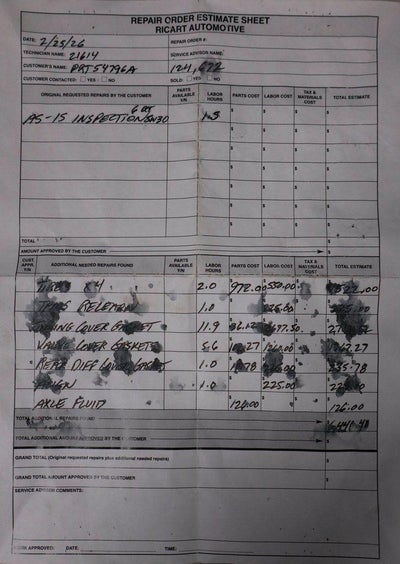 REPAIR ORDER ESTIMATE SHEET
RICART AUTOMOTIVE
DATE: 2/25/26 REPAIR ORDER #:
TECHNICIAN NAME: 21614 SERVICE ADVISOR NAME:
CUSTOMER'S NAME: PRT54796A 124,672
CUSTOMER CONTACTED: YES NO SOLD: YES NO
ORIGINAL REQUESTED REPAIRS BY THE CUSTOMER PARTS AVAILABLE Y/N LABOR HOURS PARTS COST LABOR COST TAX & MATERIALS COST TOTAL ESTIMATE
6 QT
AS-IS INSPECTION 5W30 1.5
TOTAL
AMOUNT APPROVED BY THE CUSTOMER
CUST. APPR. Y/N ADDITIONAL NEEDED REPAIRS FOUND PARTS AVAILABLE Y/N LABOR HOURS PARTS COST LABOR COST TAX & MATERIALS COST TOTAL ESTIMATE
X4 2.0 972.00 550.00 1522.00
1.0
COVER GASKET 11.9
VALVE COVER GASKETS 5.6 1260.00
REAR DIFF COVER GASKET 1.0 235.78
1.0 225.00
AXLE FLUID 126.00 126.00
TOTAL ADDITIONAL REPAIRS FOUND
TOTAL ADDITIONAL AMOUNT APPROVED BY THE CUSTOMER
GRAND TOTAL (Original requested repairs plus additional needed repairs)
GRAND TOTAL AMOUNT APPROVED BY THE CUSTOMER
SERVICE ADVISOR COMMENTS:
APPROVED: DATE: TIME: